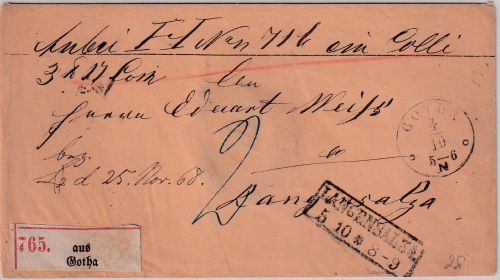 Anbei
ein Colli
3 17
Herrn Eduart Weiss
bez.
d 25. Nov. 68.
2
Langensalza
GOTHA
4
10
5-6
N
LANGENSALZA
5 10 8-9
765.
aus
Gotha
28